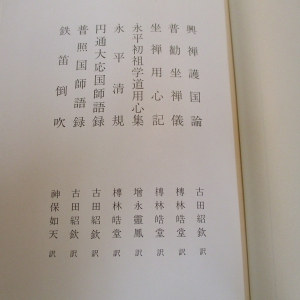 興禅護国論 古田紹欽 訳
普勧坐禅儀 榑林皓堂 訳
坐禅用心記 榑林皓堂 訳
永平初祖学道用心集 増永靈鳳 訳
永平清規 榑林皓堂 訳
円通大応国師語録 古田紹欽 訳
普照国師語録 古田紹欽 訳
鉄笛倒吹 神保如天 訳